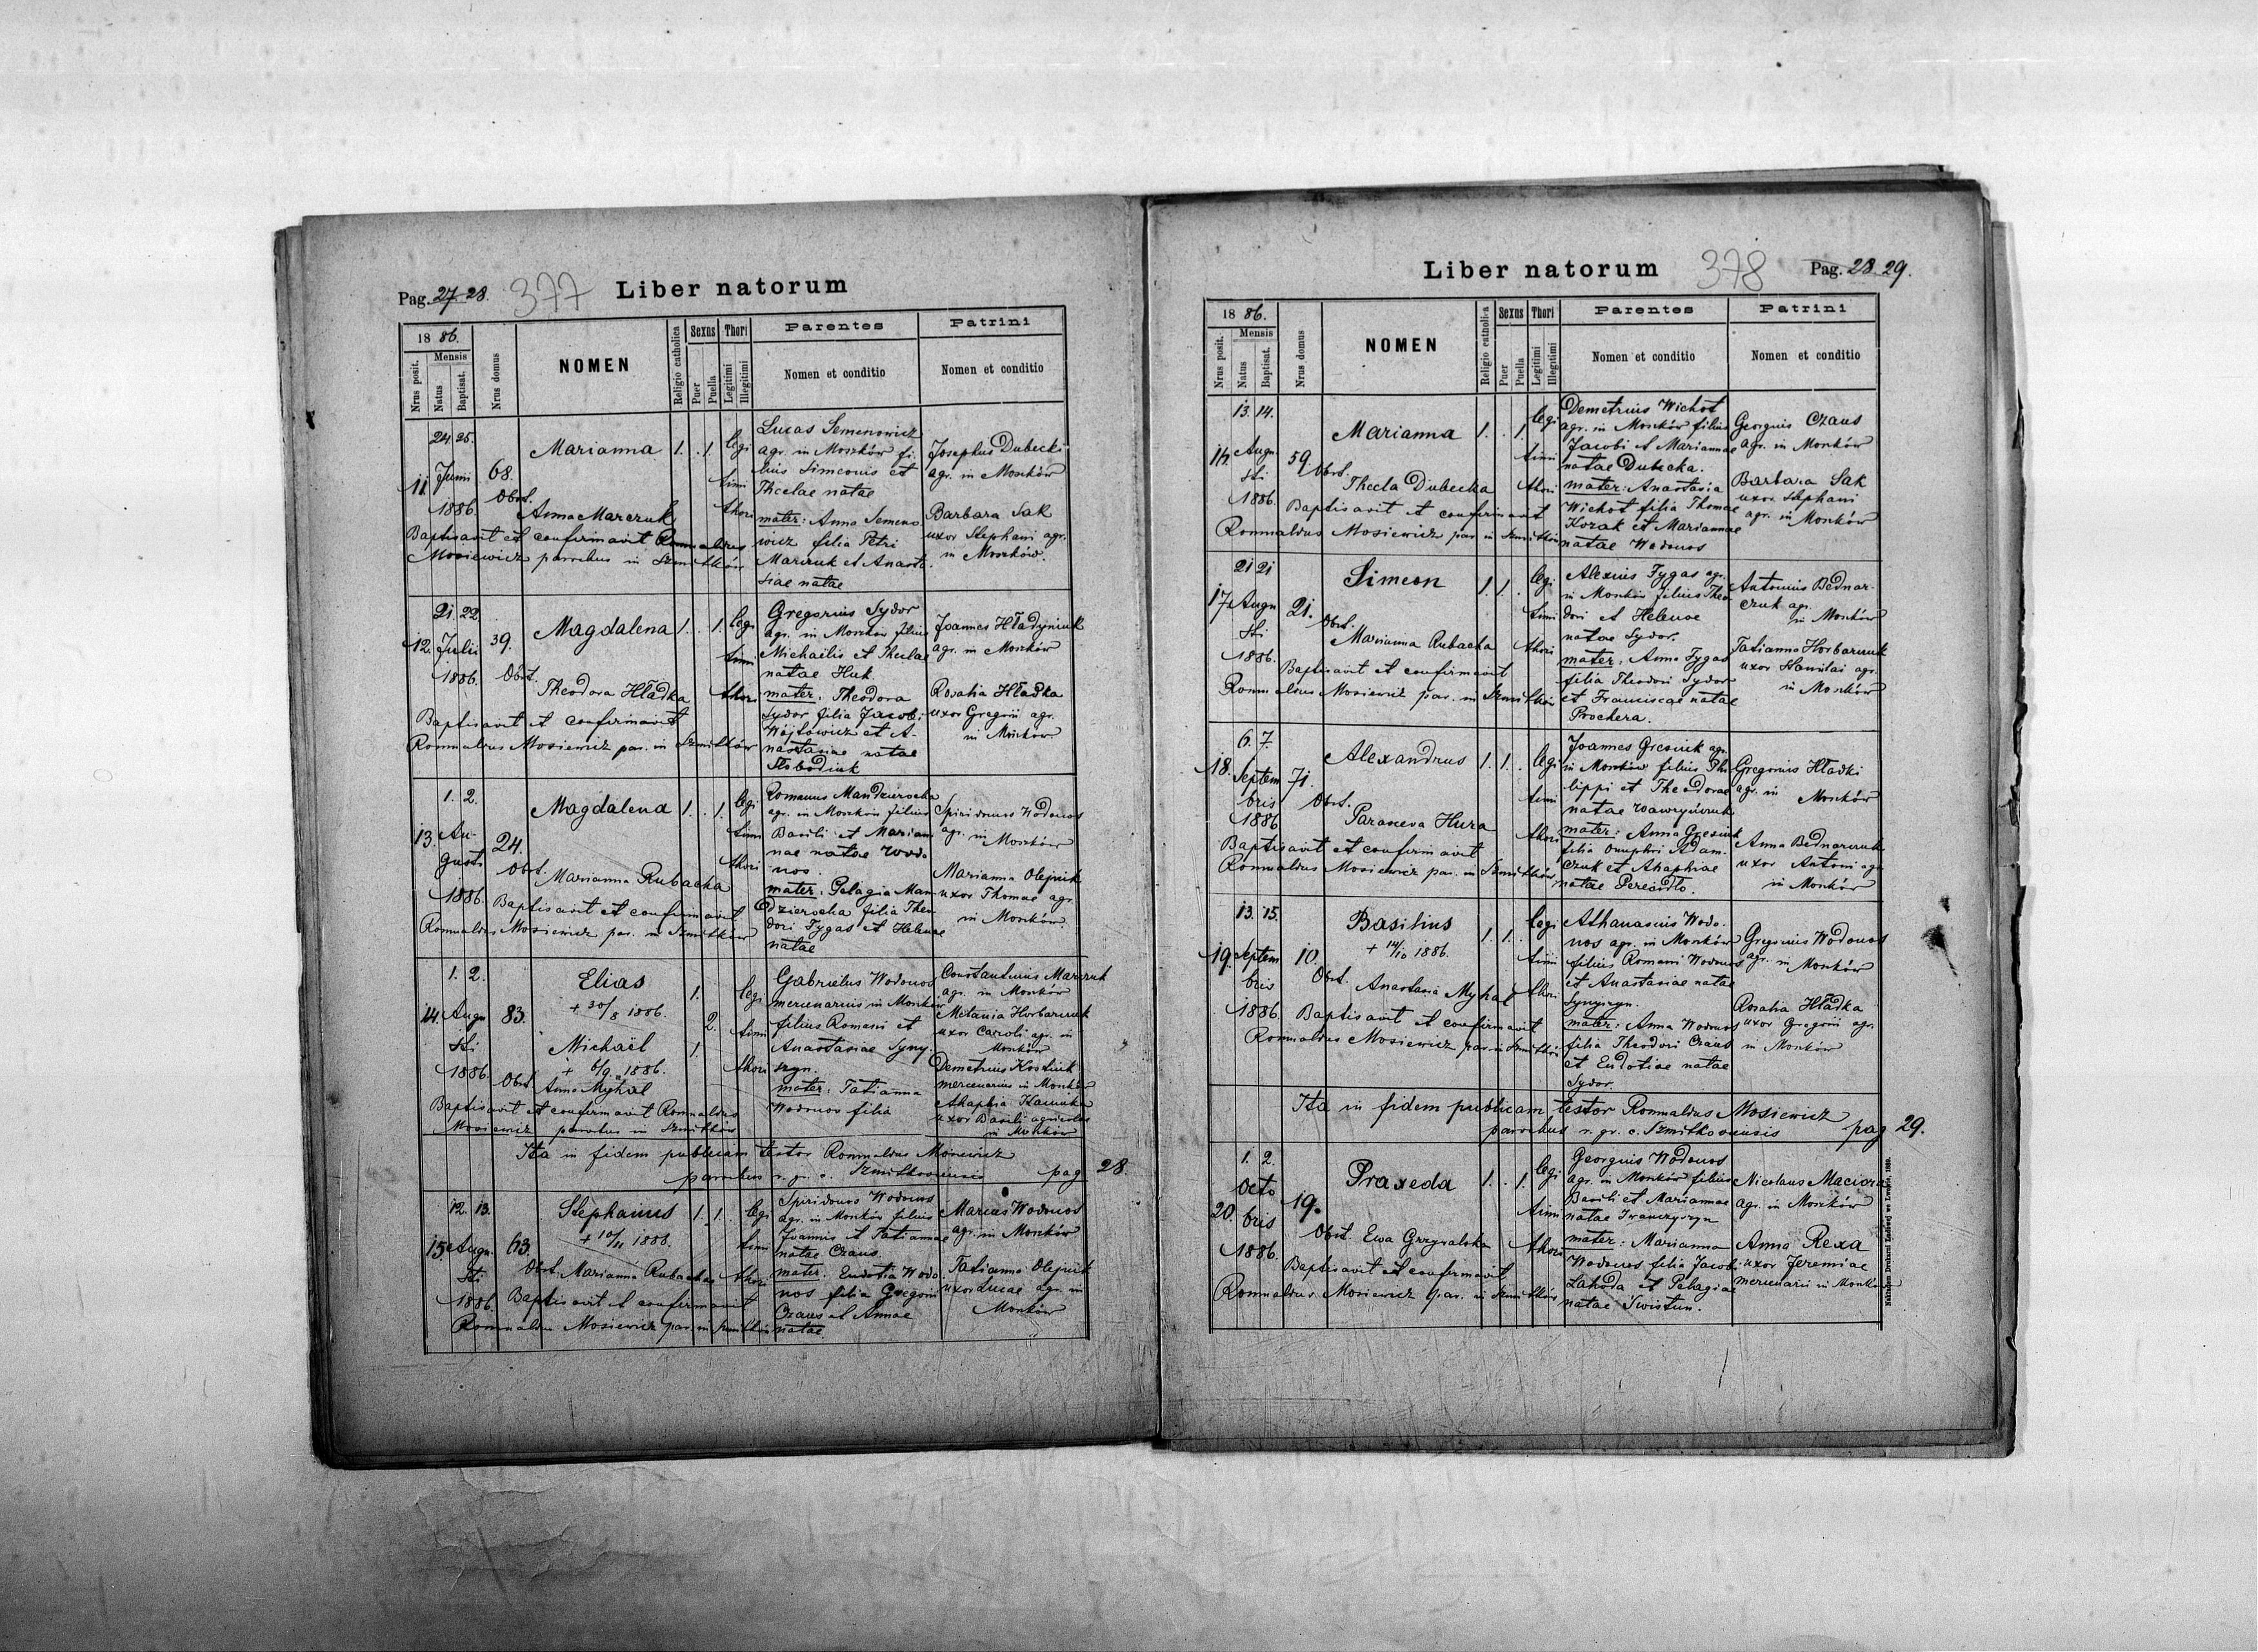 Pag. 27-28. 377 Liber natorum
18 86.
Nrus posit.
Mensis
Natus
Baptisat.
Nrus domus
NOMEN
Religio catholica
Sexus
Puer
Puella
Thori
Legitimi
Illegitimi
Parentes
Nomen et conditio
Patrini
Nomen et conditio
11.
24. 25.
Junii
1886.
68.
Marianna
1. . 1.
legi
timi
thori
Obst.
Anna Marczuk
Baptisavit et confirmavit Romualdus
Mosiewicz parochus in Szmitków
Lucas Semenowicz
agr. in Moszków fi-
lius Simeonis et
Theclae natae
mater: Anna Semeno
wicz filia Petri
Marczuk et Anasta
siae natae
Josephus Dubecki
agr. in Moszków
Barbara Sak
uxor Stephani agr.
in Moszków.
12.
21. 22.
Julii
1886.
39.
Magdalena
1. . 1.
legi
timi
thori
Obst.
Theodora Hładka
Baptisavit et confirmavit
Romualdus Mosiewicz par. in Szmitków
Gregorius Sydor
agr. in Moszków filius
Michaëlis et Theclae
natae Huk
mater: Theodora
Sydor filia Jacobi
Wojtowicz et A-
nastasiae natae
Słobodiuk
Joannes Hładyniuk
agr. in Moszków
Rosalia Hładka
uxor Gregorii agr.
in Moszków
13.
1. 2.
Au-
gusti
1886.
24.
Magdalena
1. . 1.
legi
timi
thori
Obst.
Marianna Rubacha
Baptisavit et confirmavit
Romualdus Mosiewicz par. in Szmitków
Romanus Mandzierocha
agr. in Moszków filius
Basili et Marian
nae natae Wodo
nos.
mater: Pelagia Man
dzierocha filia Theo
dori Tygas et Helenae
natae
Spiridonus Wodonos
agr. in Moszków
Marianna Olejnik
uxor Thomae agr.
in Moszków.
14.
1. 2.
Augu
sti
1886.
83.
Elias
+ 30/8 1886.
1.
Michaël
+ 6/9 1886.
1.
2.
legi
timi
thori
Obst.
Anna Myhal
Baptisavit et confirmavit Romualdus
Mosiewicz parochus in Szmitków
Gabrielus Wodonos
mercenarius in Moszków
filius Romani et
Anastasiae Syny-
szyn.
mater: Tatianna
Wodonos filia
Constantinus Marczuk
agr. in Moszków
Melania Horbaczuk
uxor Caroli agr. in
Moszków
Demetrius Kostiuk
mercenarius in Moszków
Ahaphia
uxor Basili agricolae
in Moszków
Ita in fidem publicam testor Romualdus Mosiewicz
parochus r. gr. c. Szmitkoviensis pag 28.
15.
12. 13.
Augu
sti
1886.
63.
Stephanus
+ 10/11 1886.
1. 1.
legi
timi
thori
Obst. Marianna Rubacha
Baptisavit et confirmavit
Romualdus Mosiewicz par. in Szmitków
Spiridonus Wodonos
agr. in Moszków filius
Joannis et Tatiannae
natae Czaus.
mater: Eudotia Wodo
nos filia Gregorii
Czaus et Annae
natae.
Marcus Wodonos
agr. in Moszków
Tatianna Olejnik
uxor Lucae agr. in
Moszków
Liber natorum 378 Pag. 28-29.
18 86.
Nrus posit.
Mensis
Natus
Baptisat.
Nrus domus
NOMEN
Religio catholica
Sexus
Puer
Puella
Thori
Legitimi
Illegitimi
Parentes
Nomen et conditio
Patrini
Nomen et conditio
13. 14.
Augu
sti
1886.
59
Marianna
1. . 1.
legi
timi
thori
Obst.
Thecla Dubecka
Baptisavit et confirmavit
Romualdus Mosiewicz par. in Szmitków
Demetrius Wichot
agr. in Moszków filius
Jacobi et Mariannae
natae Dubecka.
mater: Anastasia
Wichot filia Thomae
Kozak et Mariannae
natae Wodonos
Georgius Czaus
agr. in Moszków
Barbara Sak
uxor Stephani
agr. in Moszków
17.
21 21
Augu
sti
1886.
21.
Simeon
1. 1. .
legi
timi
thori
Obst.
Marianna Rubacha
Baptisavit et confirmavit
Romualdus Mosiewicz par. in Szmitków
Alexius Tygas agr.
in Moszków filius Theo
dori et Helenae
natae Sydor.
mater: Anna Tygas
filia Theodori Sydor
et Franciscae natae
Prochera.
Antonius Bednar-
czuk agr.
in Moszków
Tatianna Horbaczuk
uxor Hawrilai agr.
in Moszków
18.
6. 7.
Septem
bris
1886
71.
Alexandrus
1. 1. .
legi
timi
thori
Obst.
Parasceva Hura
Baptisavit et confirmavit
Romualdus Mosiewicz par. in Szmitków
Joannes Gresiuk agr.
in Moszków filius Phi
lippi et Theodorae
natae Wawryńczuk
mater: Anna Gresiuk
filia Onuphri Adam-
czuk et Ahaphiae
natae
Gregorius Hładki
agr. in Moszków
Anna Bednarczuk
uxor Antoni agr.
in Moszków
19.
13. 15.
Septem
bris
1886.
10.
Basilius
+ 14/10 1886.
1. 1. .
legi
timi
thori
Obst. Anastasia Myhal
Baptisavit et confirmavit
Romualdus Mosiewicz par. in Szmitków
Athanasius Wodo-
nos agr. in Moszków
filius Romani Wodonos
et Anastasiae natae
Synyszyn.
mater: Anna Wodonos
filia Theodori Czaus
et Eudotiae natae
Sydor.
Gregorius Wodonos
agr. in Moszków
Rosalia Hładka
uxor Gregorii agr.
in Moszków
Ita in fidem publicam testor Romualdus Mosiewicz
parochus r. gr. c. Szmitkoviensis pag 29.
20.
1. 2.
Octo
bris
1886.
19.
Praxeda
1. . 1.
legi
timi
thori
Obst. Ewa Grzywalska
Baptisavit et confirmavit
Romualdus Mosiewicz par. in Szmitków
Georgius Wodonos
agr. in Moszków filius
Basili et Mariannae
natae Iwanczyszyn
mater: Marianna
Wodonos filia Jacobi
Zahoda et Pelagiae
natae Swistun.
Nicolaus Maciora
agr. in Moszków
Anna Rexa
uxor Jeremiae
mercenarii in Moszków
Nakładem Drukarni Ludowej we Lwowie, 1880.